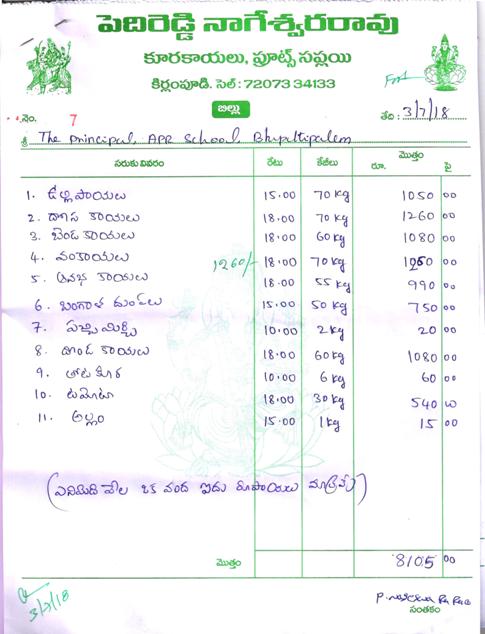 పెదిరెడ్డి నాగేశ్వరరావు
కూరకాయలు, ఫ్రూట్స్ సప్లయి
కిర్లంపూడి. సెల్: 72073 34133
బిల్లు
నెం. 7
తేది: 3/7/18
శ్రీ The Principal, APR School, Bhupathipalem
సరుకు వివరం రేటు కేజీలు మొత్తం రూ. పై
1. ఉల్లిపాయలు 15.00 70 kg 1050 00
2. దోస కాయలు 18.00 70 kg 1260 00
3. బెండకాయలు 18.00 60 kg 1080 00
4. వంకాయలు 1260/- 18.00 70 kg 1260 00
5. ఆనబ కాయలు 18.00 55 kg 990 00
6. బంగాళ దుంపలు 15.00 50 kg 750 00
7. పచ్చిమిర్చి 10.00 2 kg 20 00
8. దొండ కాయలు 18.00 60 kg 1080 00
9. తోటకూర 10.00 6 kg 60 00
10. టమోటా 18.00 30 kg 540 00
11. అల్లం 15.00 1 kg 15 00
(ఎనిమిది వేల ఒక వంద ఐదు రూపాయలు మాత్రమే)
మొత్తం 8105 00
3/7/18
సంతకం